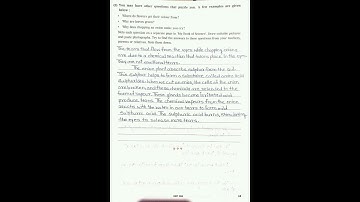 (3) You may have other questions that puzzle you. A few examples are given below :
• Where do flowers get their colour from?
• Why are leaves green?
• Why does chopping an onion make you cry?
Write each question on a separate page in 'My Book of Science'. Draw suitable pictures and paste photographs. Try to find the answers to these questions from your teachers, parents or relatives. Note them down.
The tears that flow from the eyes while chopping onions
are due to a chemical reaction that takes place in the eyes.
They are not emotional tears.
The onion plant absorbs sulphur from the soil.
This sulphur helps to form a substance called amino acid
sulphoxides. When we cut an onion, the cells of the onion
are broken, and these chemicals are released in the
form of vapour. These glands become irritated and
produce tears. The chemical vapours from the onion
reacts with the water in our tears to form mild
sulphuric acid. The sulphuric acid burns, stimulating
the eyes to release more tears.